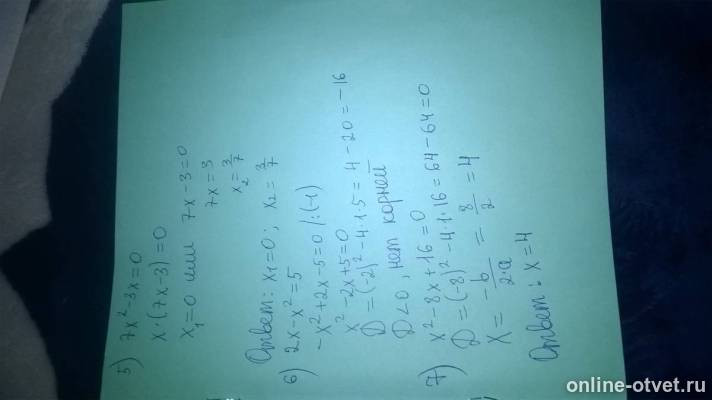 5) 7x²-3x=0
x·(7x-3)=0
x₁=0 или 7x-3=0
7x=3
x₂=3/7
Ответ: x₁=0; x₂=3/7
6) 2x-x²=5
-x²+2x-5=0 /:(-1)
x²-2x+5=0
D=(-2)²-4·1·5=4-20=-16
D<0, нет корней
7) x²-8x+16=0
D=(-8)²-4·1·16=64-64=0
x=-b/2·a=8/2=4
Ответ: x=4
online-otvet.ru